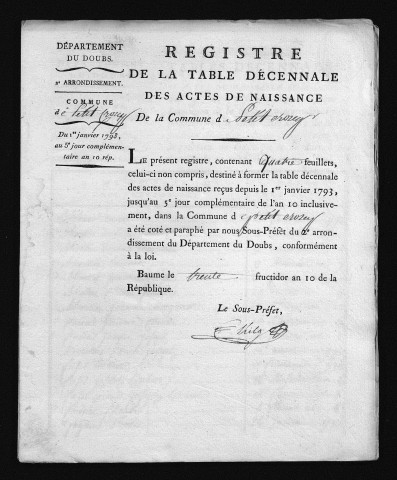 DÉPARTEMENT
DU DOUBS.
2e ARRONDISSEMENT.
COMMUNE
d e Petit Crosey
Du 1er janvier 1793,
au 5e jour complémen-
taire an 10 rép.
REGISTRE
DE LA TABLE DÉCENNALE
DES ACTES DE NAISSANCE
De la Commune d e Petit Crosey
LE présent registre, contenant quatre feuillets,
celui-ci non compris, destiné à former la table décennale
des actes de naissance reçus depuis le 1er janvier 1793,
jusqu'au 5e jour complémentaire de l'an 10 inclusive-
ment, dans la Commune d e petit crosey
a été coté et paraphé par nous Sous-Préfet du 2e arron-
dissement du Département du Doubs, conformément
à la loi.
Baume le trente fructidor an 10 de la
République.
Le Sous-Préfet,